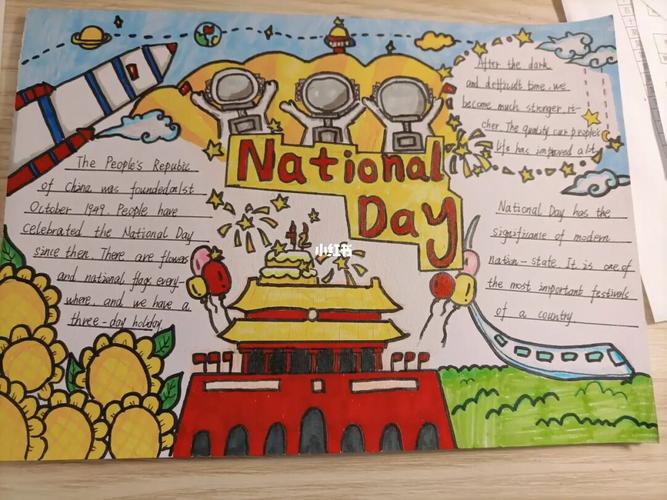 National
Day
The People's Repubic
of China was founded on 1st
October 1949. People have
celebrated the National Day
since then. There are flowers
and national flags every-
where, and we have a
three-day holiday
After the dark
and defficult time, we
become much stronger, ri-
cher. The quality our people's
life has improved a lot
National Day has the
significance of modern
nation-state. It is one of
the most important festivals
of a country
小红书